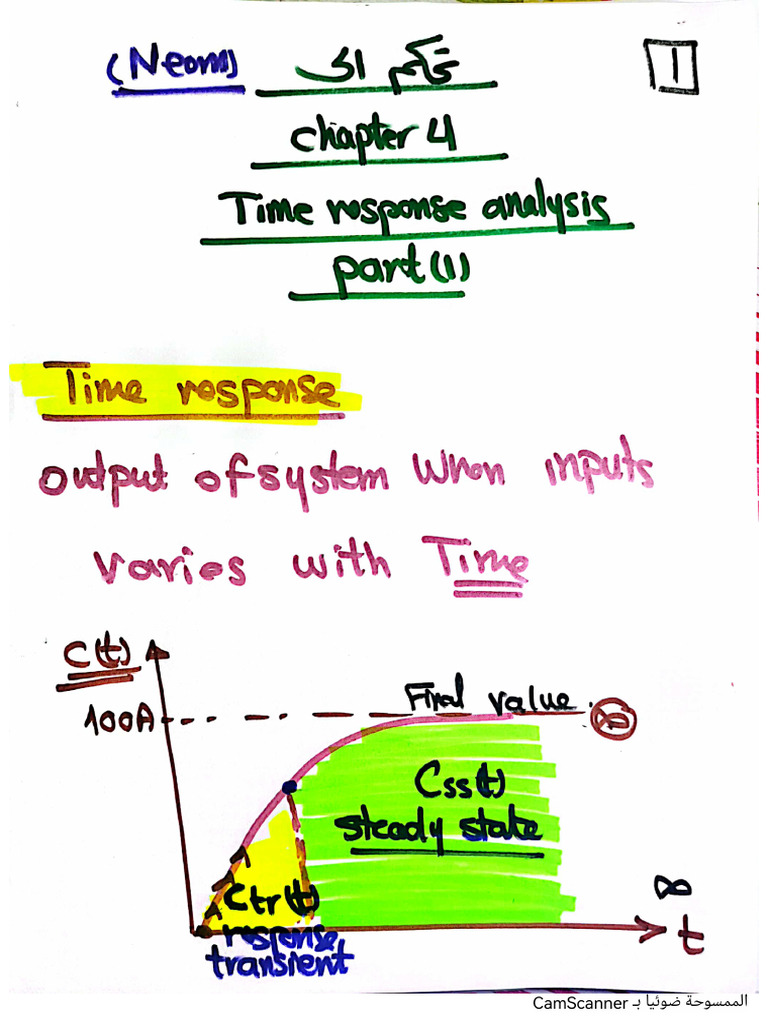 (Neom) تحكم الى 1
chapter 4
Time response analysis
part (1)
Time response
output of system when inputs
varies with Time
c(t)
Final value ∞
100A
Css(t)
steady state
Ctr(t)
response
transient
∞
t
الممسوحة ضوئيا بـ CamScanner